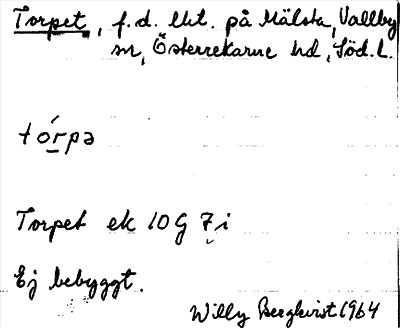 Torpet, f.d. lht. på Mälsta, Vallby
sn, Österrekarne hd, Söd. l.
tórpə
Torpet ek 10G 7 i
Ej bebyggt.
Willy Bergkvist 1964